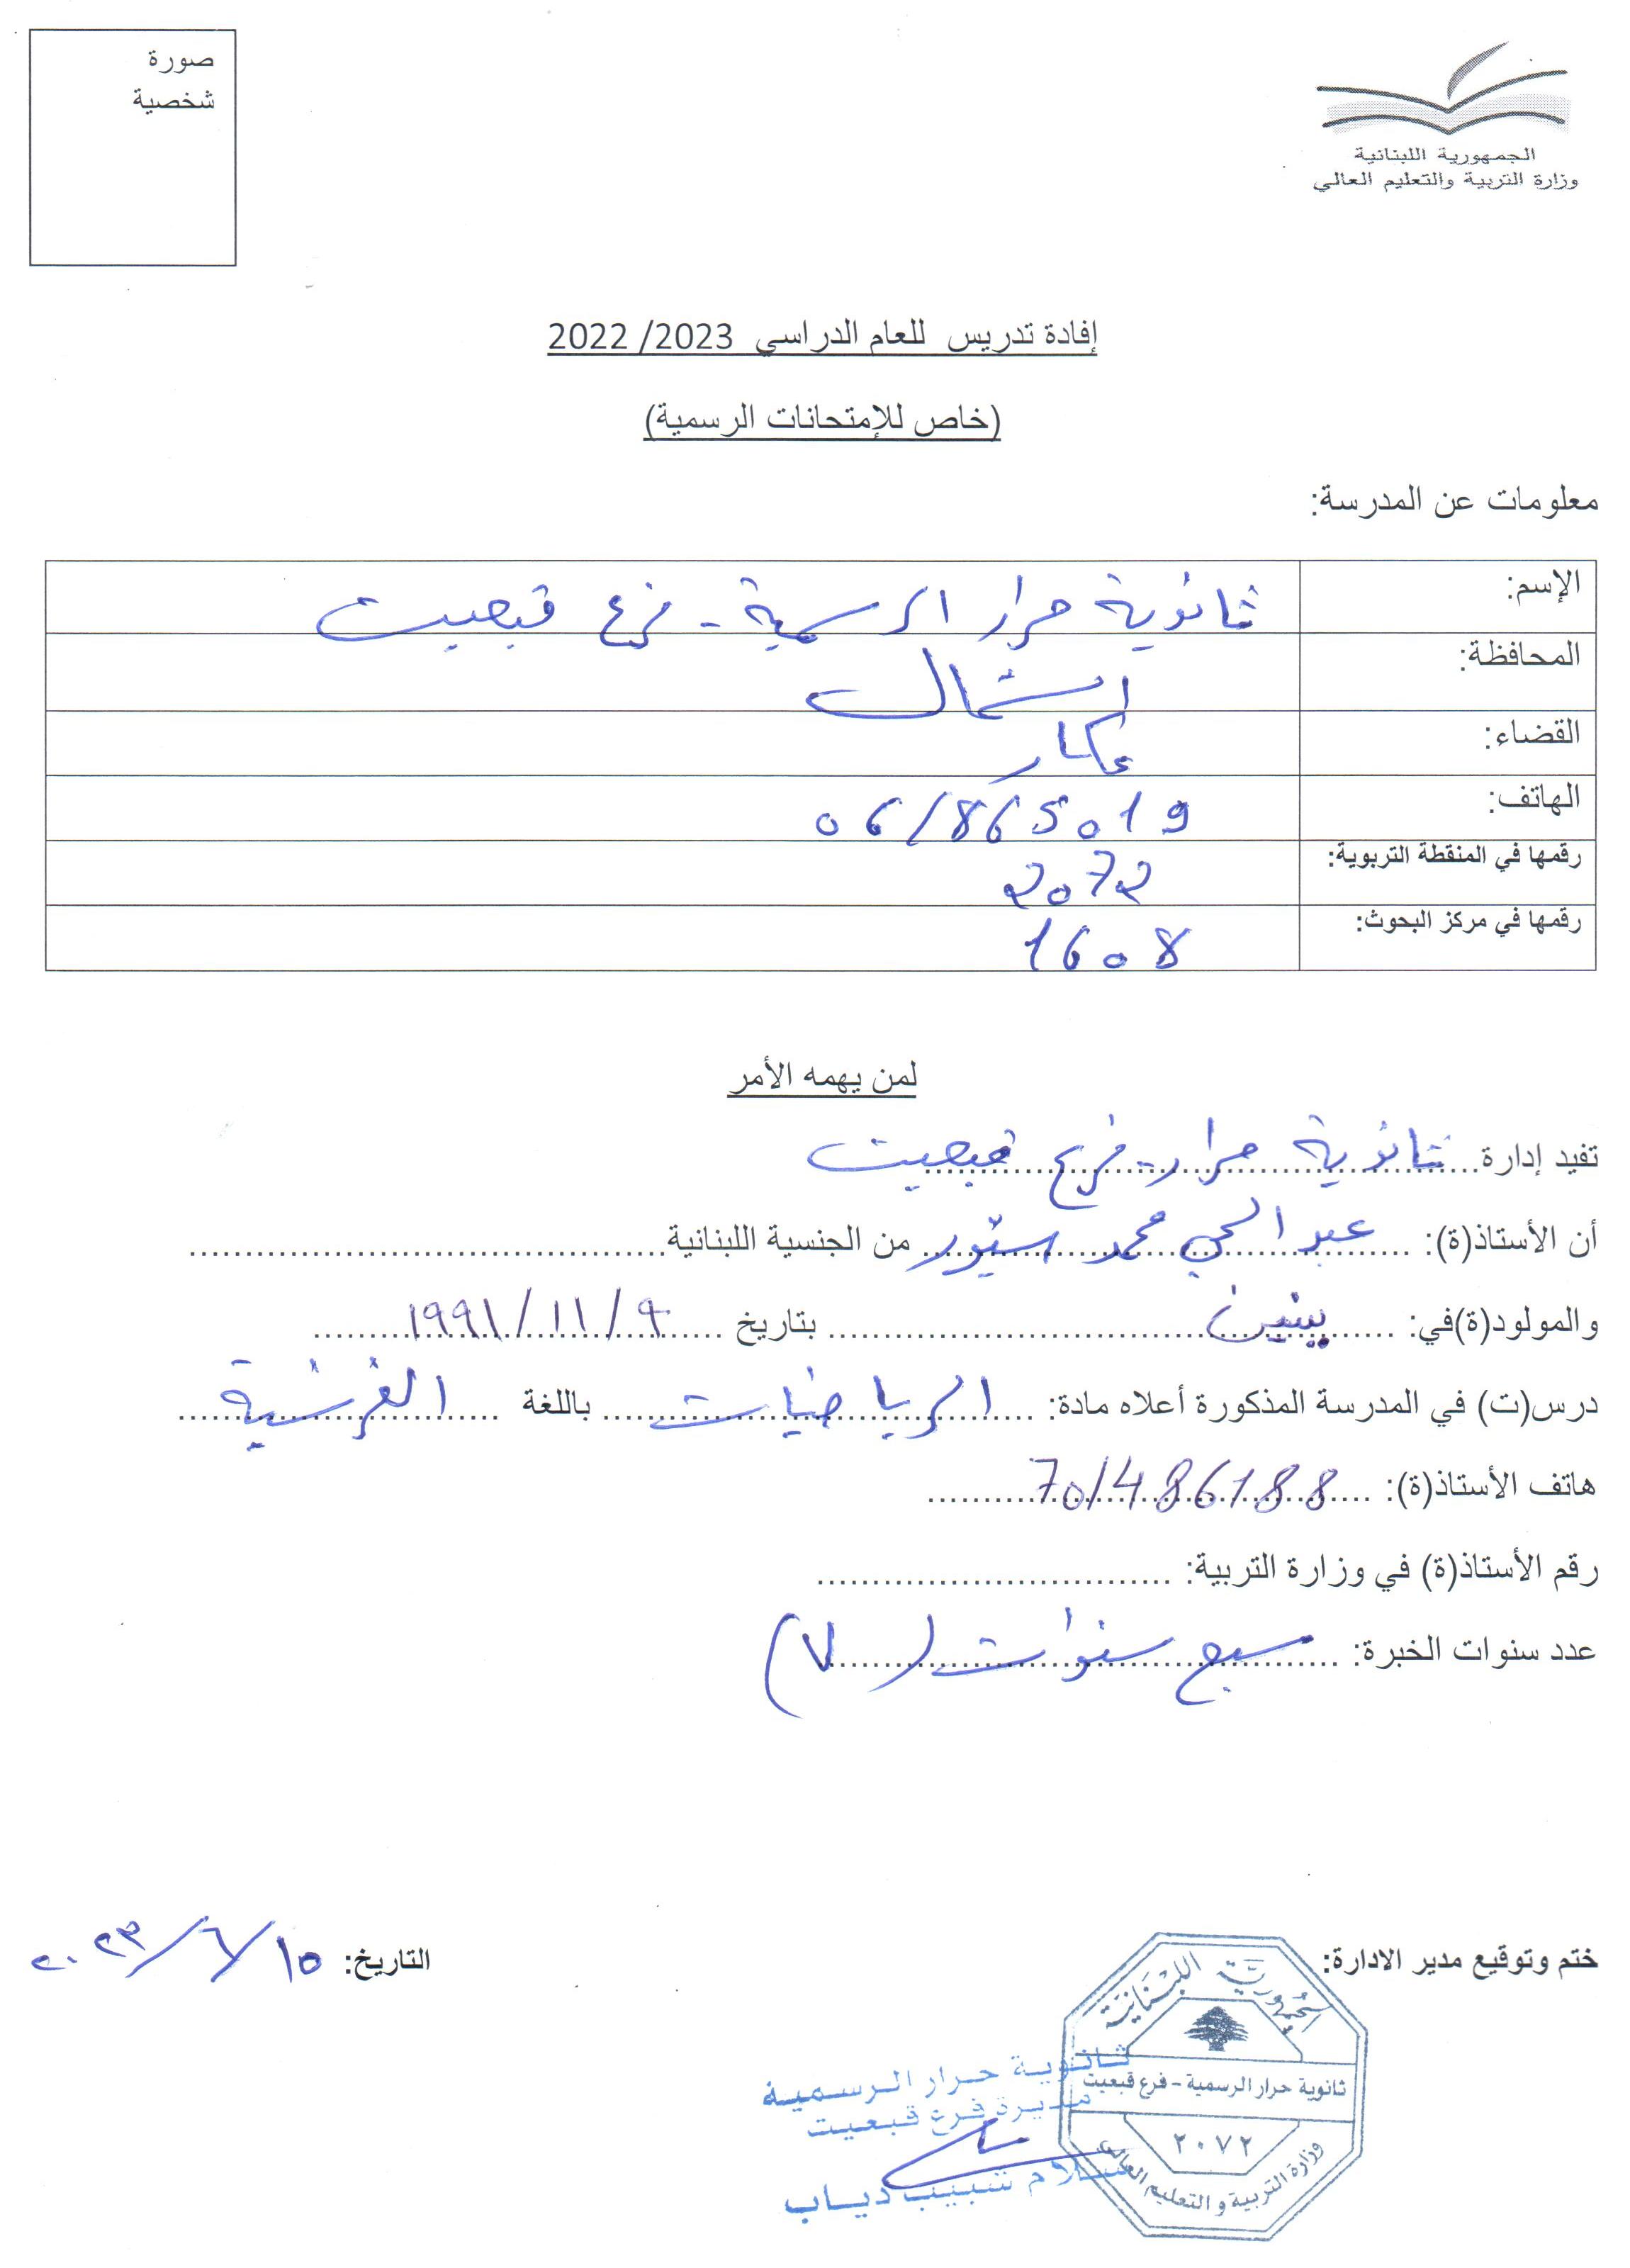 صورة
شخصية
الجمهورية اللبنانية
وزارة التربية والتعليم العالي
إفادة تدريس للعام الدراسي 2023/ 2022
(خاص للإمتحانات الرسمية)
معلومات عن المدرسة:
الإسم: ثانوية حرار الرسمية - فرع قبعيت
المحافظة: الشمال
القضاء: عكار
الهاتف: 06/865019
رقمها في المنقطة التربوية: 2072
رقمها في مركز البحوث: 1608
لمن يهمه الأمر
تفيد إدارة ثانوية حرار - فرع قبعيت
أن الأستاذ(ة): عبد الحي محمد من الجنسية اللبنانية
والمولود(ة)في: ببنين بتاريخ ٩/١١/١٩٩١
درس(ت) في المدرسة المذكورة أعلاه مادة: الرياضيات باللغة الفرنسية
هاتف الأستاذ(ة): 70/486188
رقم الأستاذ(ة) في وزارة التربية:
عدد سنوات الخبرة: سبع سنوات (٧)
ختم وتوقيع مدير الادارة: التاريخ: ١٥/٦/٢٠٢٣
الجمهورية اللبنانية
ثانوية حرار الرسمية - فرع قبعيت
٢٠٧٢
وزارة التربية و التعليم العالي
ثانوية حرار الرسمية
مديرة فرع قبعيت
سلام شبيب دياب